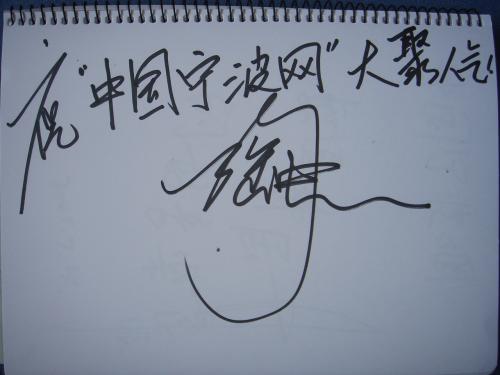 祝"中国宁波网"大聚人气!